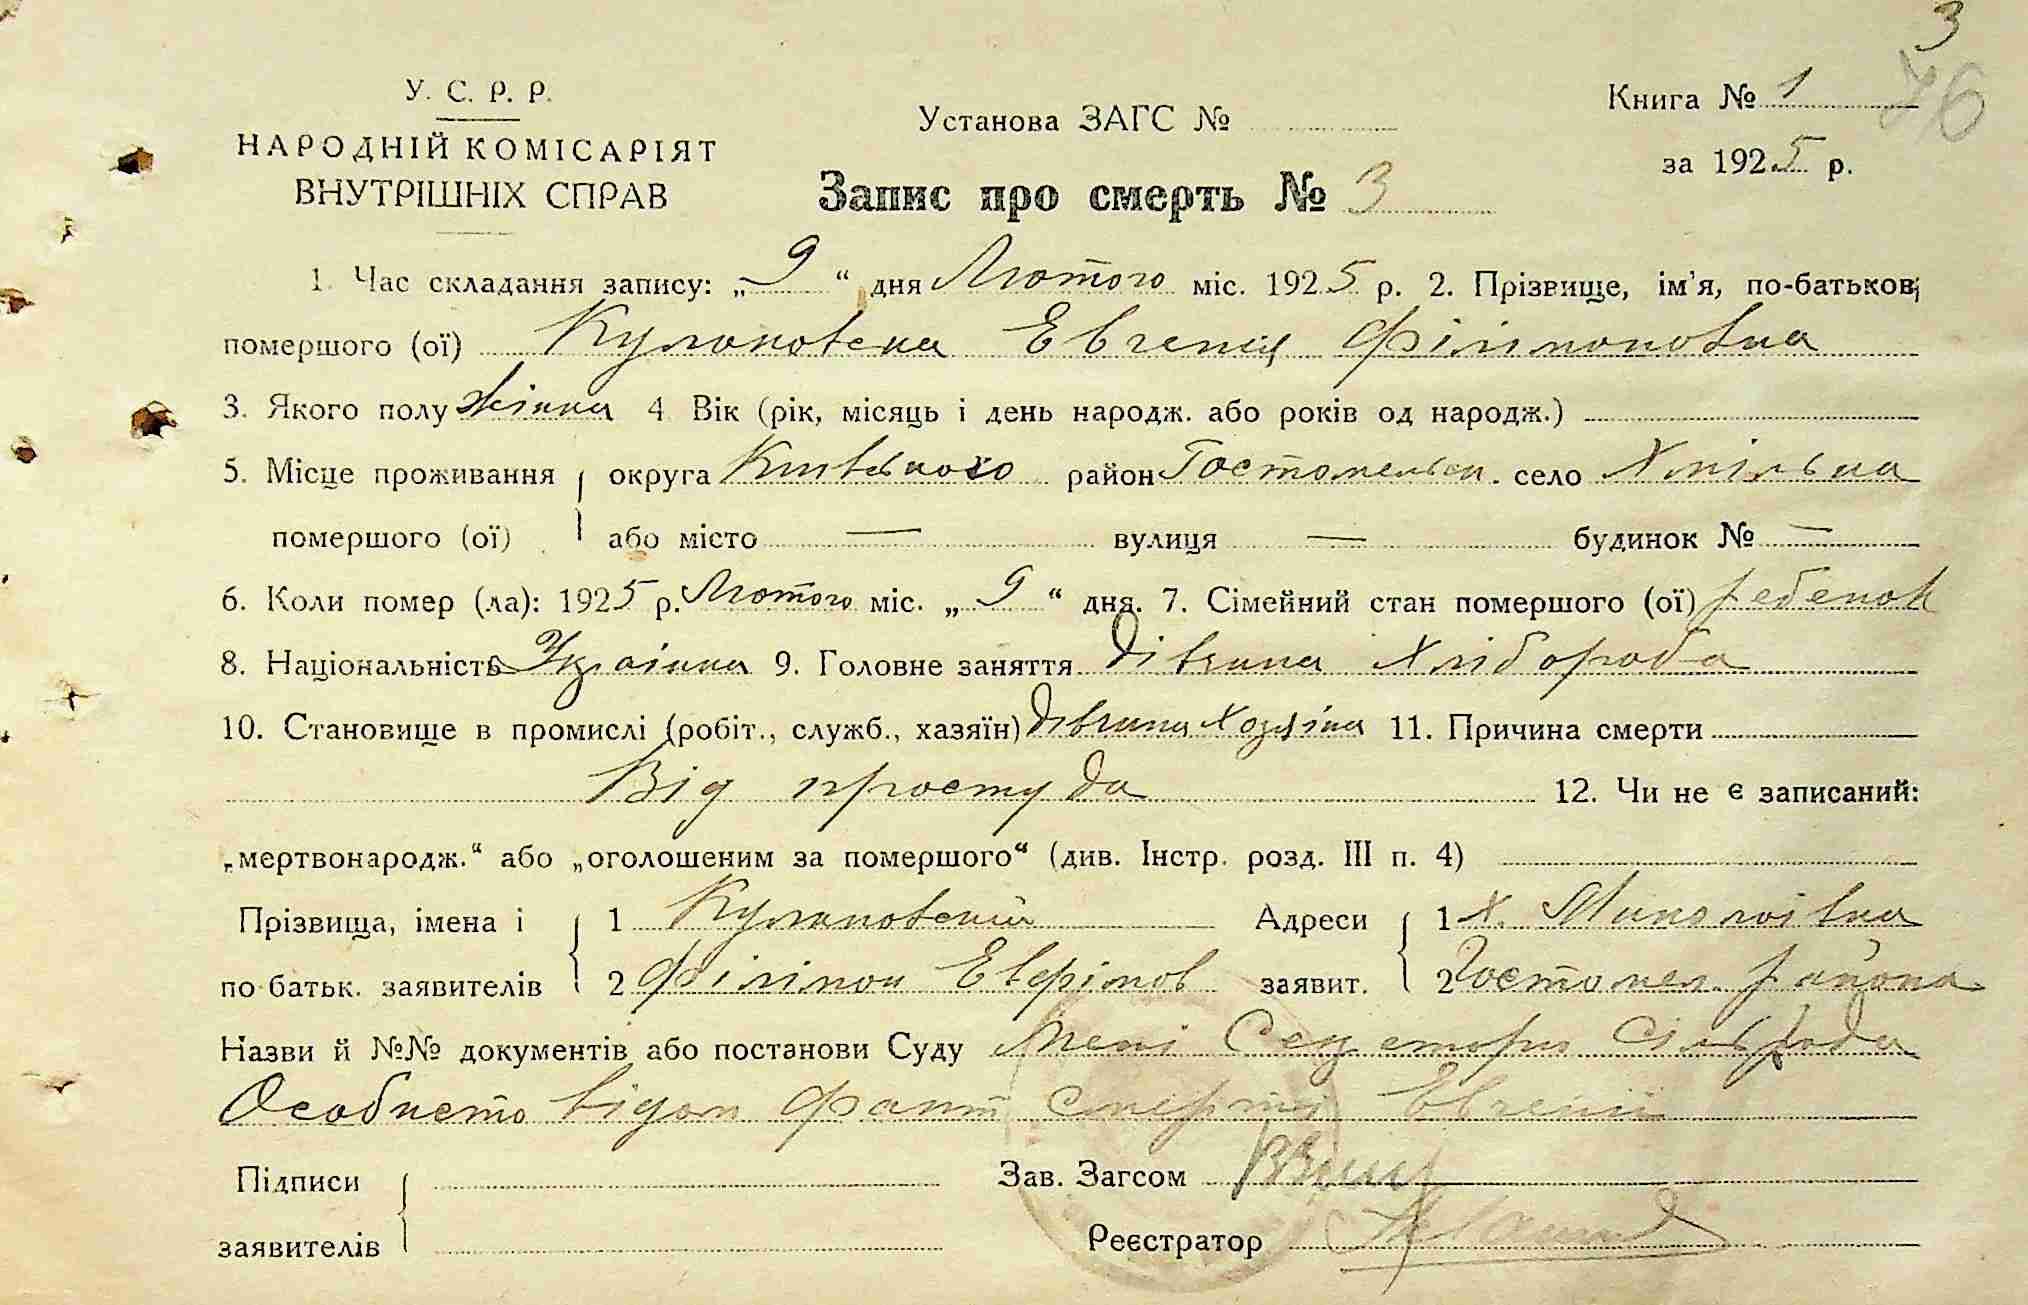 3
76
У. С. Р. Р.
НАРОДНІЙ КОМІСАРІЯТ
ВНУТРІШНІХ СПРАВ
Установа ЗАГС №
Запис про смерть № 3
Книга № 1
за 1925 р.
1. Час складання запису: „9“ дня Лютого міс. 1925 р. 2. Прізвище, ім'я, по-батькові
помершого (ої) Кулаковска Евгенія Філімоновна
3. Якого полу жінка 4. Вік (рік, місяць і день народж. або років од народж.)
5. Місце проживання округа Київського район Гостомельск. село Хмільна
помершого (ої) або місто — вулиця — будинок № —
6. Коли помер (ла): 1925 р. Лютого міс. „9“ дня. 7. Сімейний стан помершого (ої) ребенок
8. Національність Украінка 9. Головне заняття Дівчина Хлібороба
10. Становище в промислі (робіт., служб., хазяїн) Дівчина Хозяіна 11. Причина смерти
Від простуда 12. Чи не є записаний:
„мертвонародж.“ або „оголошеним за помершого“ (див. Інстр. розд. III п. 4)
Прізвища, імена і 1 Кулаковский Адреси 1 х.
по батьк. заявителів 2 Філімон Евфімов заявит. 2 Гостомел. района
Назви й №№ документів або постанови Суду Мені Секретарю Сільрада
Особисто відом факт смерти Евгенії
Підписи Зав. Загсом
заявителів Реєстратор